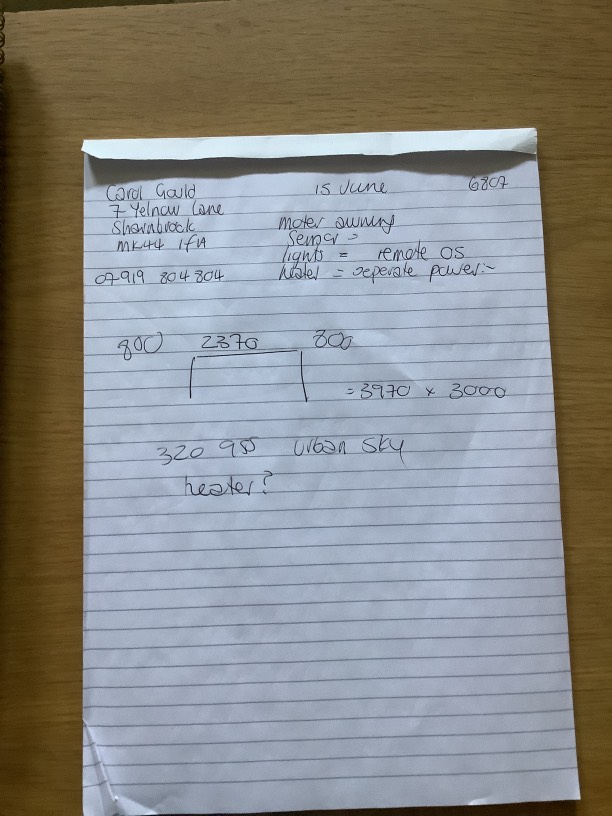 Carol Gould 15 June 6807
7 Yelnow Lane
Sharnbrook moter awning
MK44 1FA Sensor =
lights = remote OS
07919 804 804 heater = seperate power:-
800 2370 800
= 3970 x 3000
320 955 urban sky
heater?